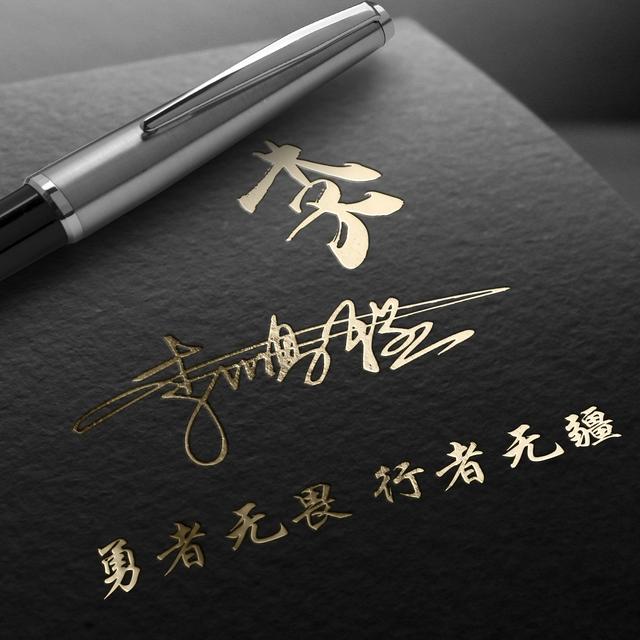 李
勇者无畏 行者无疆